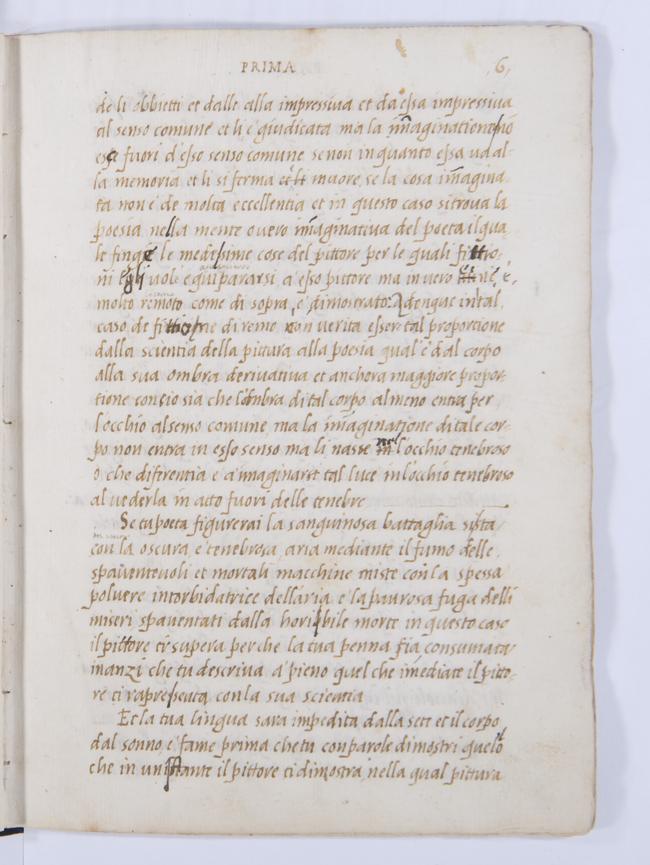 PRIMA 6
de li obbietti et dalle alla impressiva et da essa impressiva
al senso comune et li è giudicata ma la immaginatione nò
esce fuori d'esso senso comune se non in quanto essa va al-
la memoria et li si ferma et li muore, se la cosa imagina-
ta non è de molta eccellentia et in questo caso si trova la
poesia nella mente overo immaginativa del poeta il qua
le finge le medesime cose del pittore per le quali fittio-
ni egli vole equipararsi a esso pittore ma in vero
molto remoto come di sopra, è dimostrato: Adonque in tal
caso de fittione diremo non verita esser tal proportione
dalla scientia della pittura alla poesia qual'è dal corpo
alla sua ombra derivativa et anchora maggiore propor-
tione concio sia che l'ombra di tal corpo almeno entra per
l'occhio al senso comune, ma la immaginatione di tale cor-
po non entra in esso senso ma li nasse nel l'occhio tenebroso
o, che difirentia e a imaginare tal luce in l'occhio tenebroso
al vederla in atto fuori delle tenebre
Se tu poeta figurerai la sanguinosa battaglia si sta
con la oscura, e tenebrosa aria mediante il fumo delle
spaventevoli et mortali macchine miste con la spessa
polvere intorbidatrice dell'aria e la paurosa fuga delli
miseri spaventati dalla horribile morte in questo caso
il pittore ti supera perche la tua penna fia consumata
inanzi che tu descriva a pieno quel che imediate il pitto-
re ti rapresenta con la sua scientia
Et la tua lingua sara impedita dalla sete et il corpo
dal sonno, e fame prima che tu con parole dimostri quelo
che in un istante il pittore ti dimostra, nella qual pittura